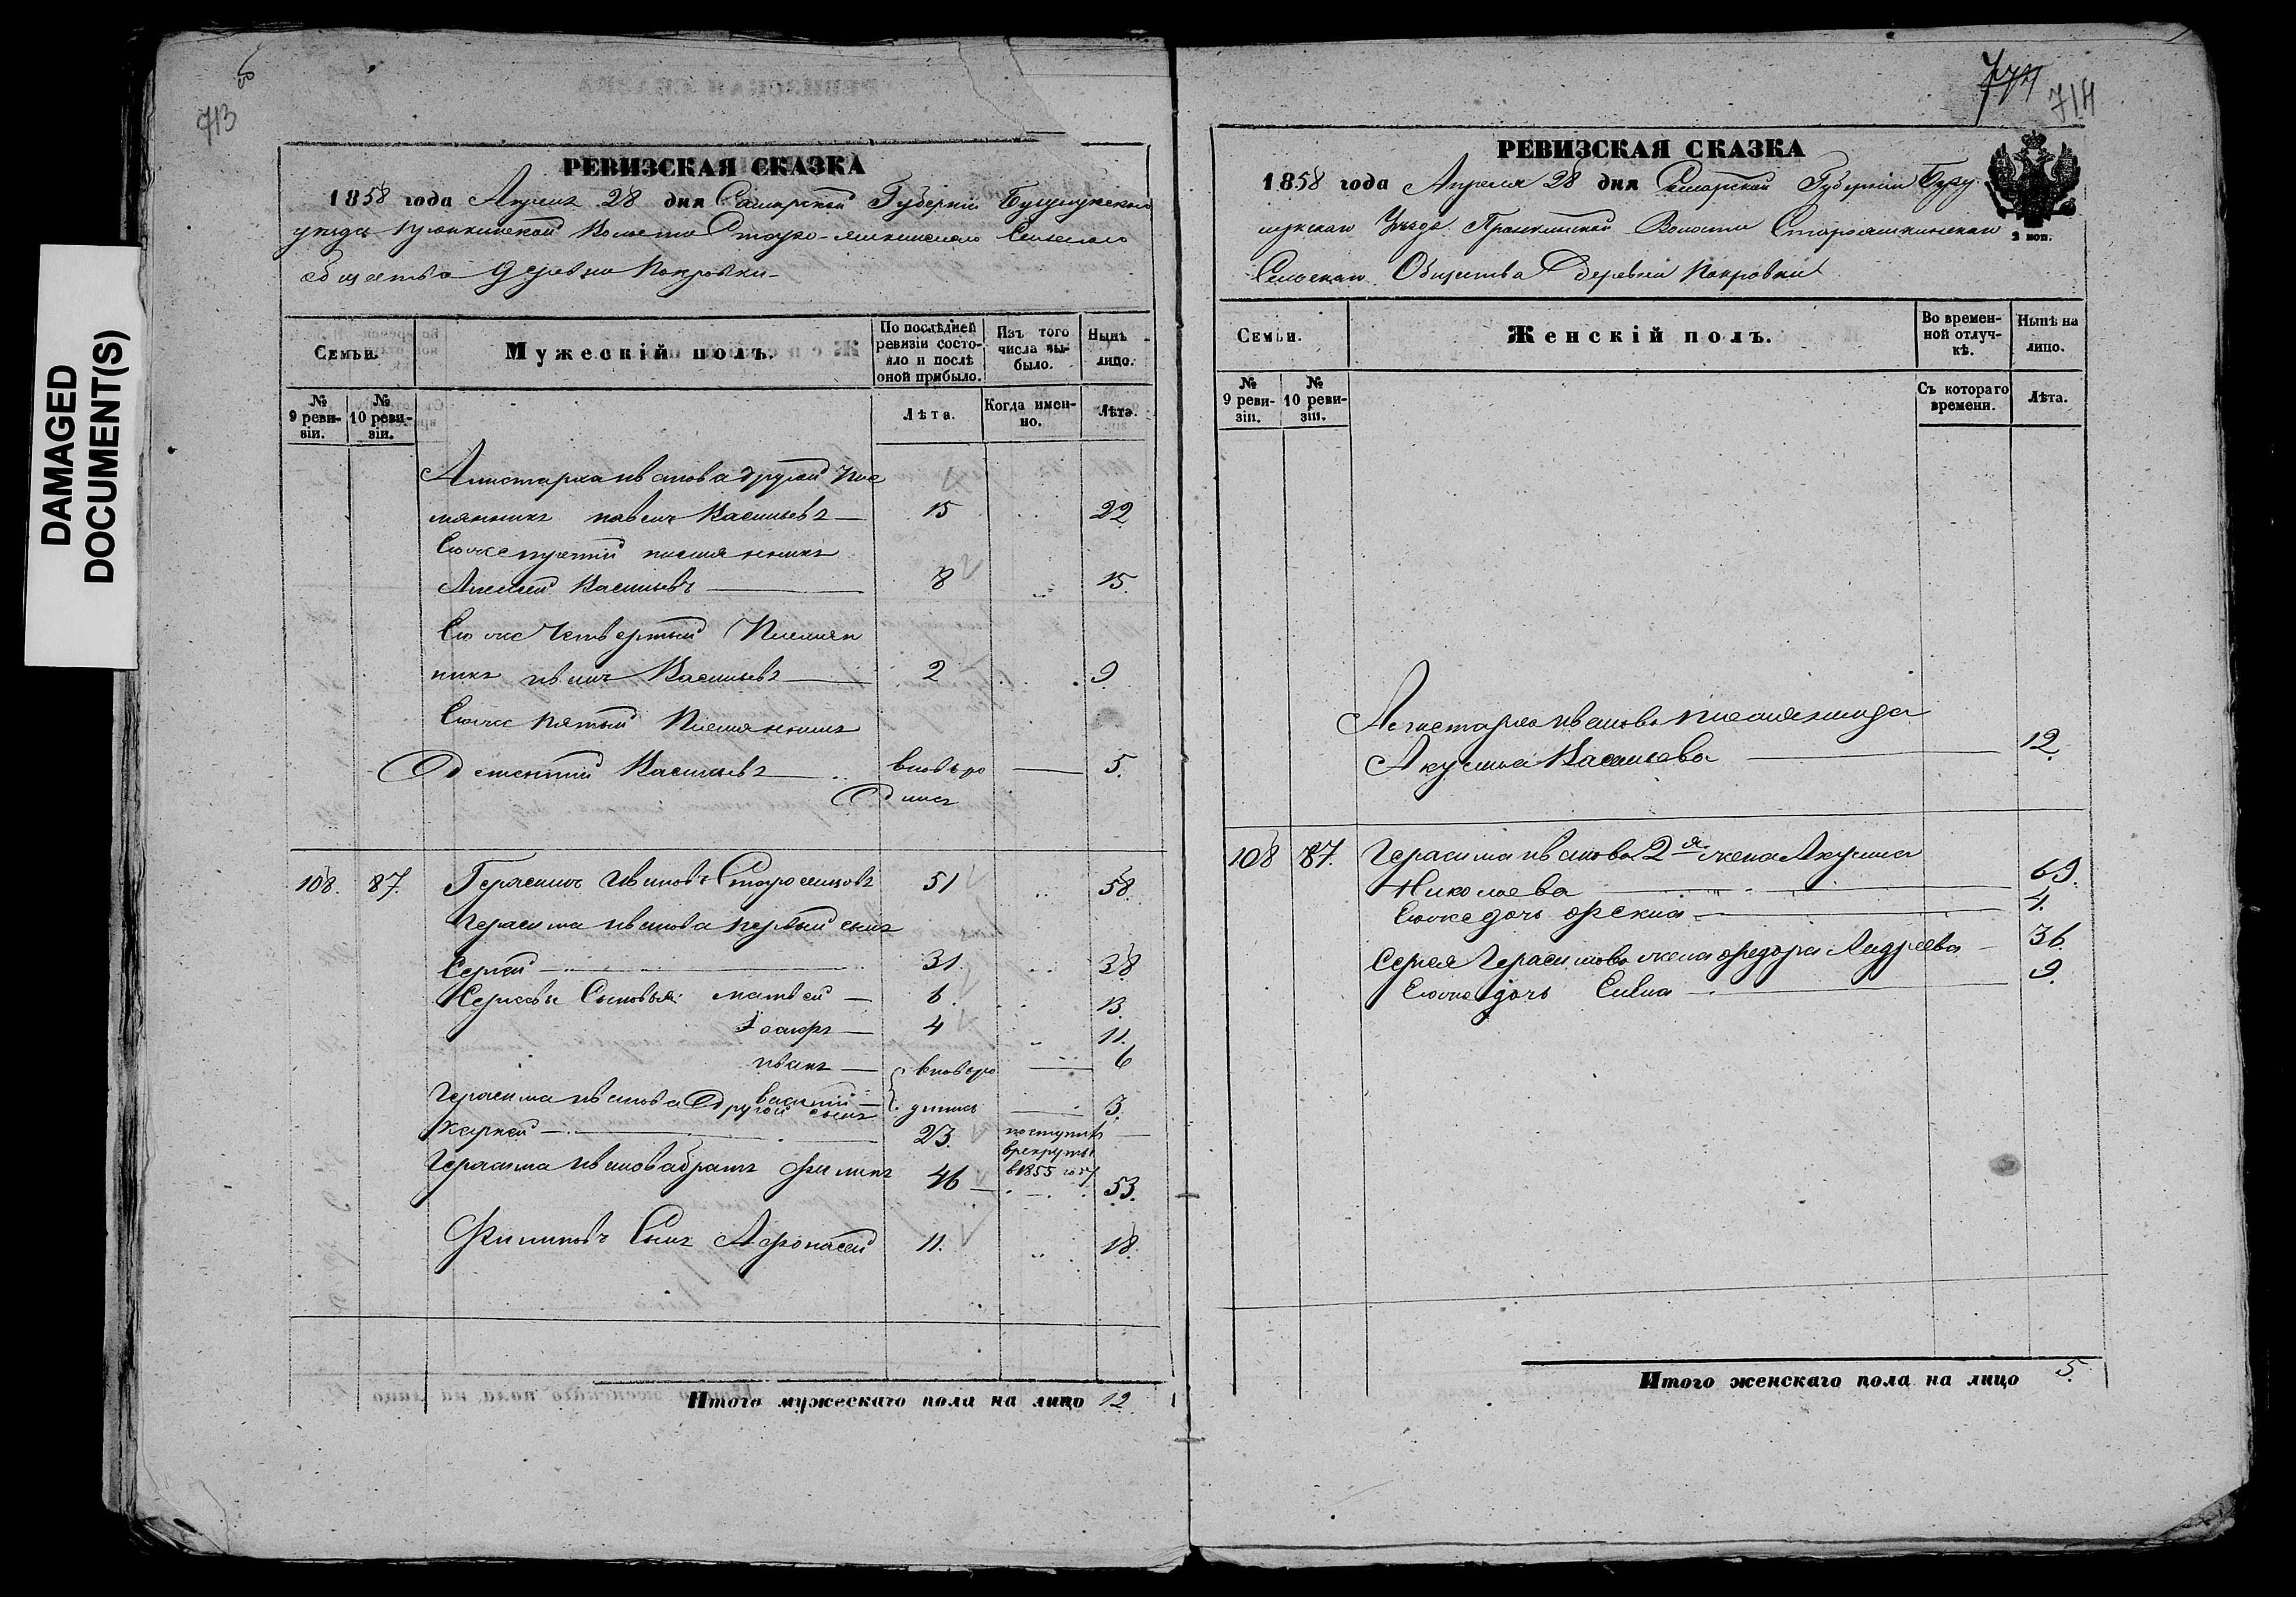 DAMAGED
DOCUMENT(S)
713
РЕВИЗСКАЯ СКАЗКА
1858 года Апреля 28 дня Самарской Губерніи Бугурусланского
уезда Волости Старо-яшкинского Сельского
общества деревни Покровки
Семьи.
Мужескій полъ.
По послѣдней ревизіи состояло и послѣ оной прибыло.
Изъ того числа выбыло.
Нынѣ на лицо.
№ 9 ревизіи.
№ 10 ревизіи.
Лѣта.
Когда именно.
Лѣта.
Аристарха Иванова другой пле
мянникъ Павелъ Васильевъ 15 22
Ево же третий племянникъ
Алексей Васильевъ 8 15
Ево же Четвертый Племян
никъ Иванъ Васильевъ 2 9
Ево же Пятый Племянникъ
Васильевъ вновь ро 5
дился
108. 87. Герасимъ Ивановъ 51 58.
Герасима Иванова первый сынъ
Сергей 31. 38
Сергеевы Сыновья: Матвей 6. 13.
4 11.
Иванъ вновь ро 6
Василий дились 3.
Герасима Иванова другой сынъ
23. поступилъ
в рекруты
в 1855 году
Герасима Иванова братъ Филипъ 46 53.
Филиповъ Сынъ Афонасей 11. 18.
Итого мужескаго пола на лицо 12
774
714
РЕВИЗСКАЯ СКАЗКА
1858 года Апреля 28 дня Самарской Губерніи Бузу
лукскаго Уезда Волости Старояшкинскаго
Сельскаго Общества Деревни Покровки
2 коп.
Семьи.
Женскій полъ.
Во временной отлучкѣ.
Нынѣ на лицо.
№ 9 ревизіи.
№ 10 ревизіи.
Съ котораго времени.
Лѣта.
Аристарха Иванова племянница
Акулина Васильева 12.
108 87. Герасима Иванова 2я жена Акулина
Николаева 69.
Ево же дочь Фекла 4.
Сергея Герасимова жена Федора Андреева 36
Ево же дочь 9.
Итого женскаго пола на лицо 5.